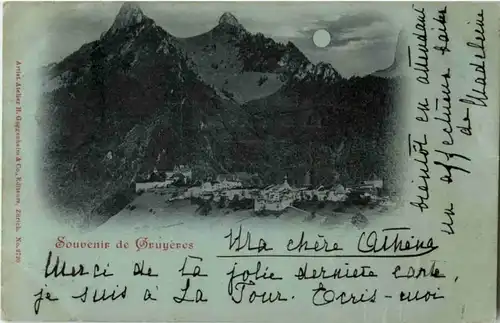 Artist. Atelier H. Guggenheim & Co., Editeurs, Zürich. No.
Souvenir de Gruyères
Ma chère Athéna
Merci de ta jolie dernière carte,
je suis à La Tour. Écris-moi
bientôt en attendant
un affectueux
de Madeleine